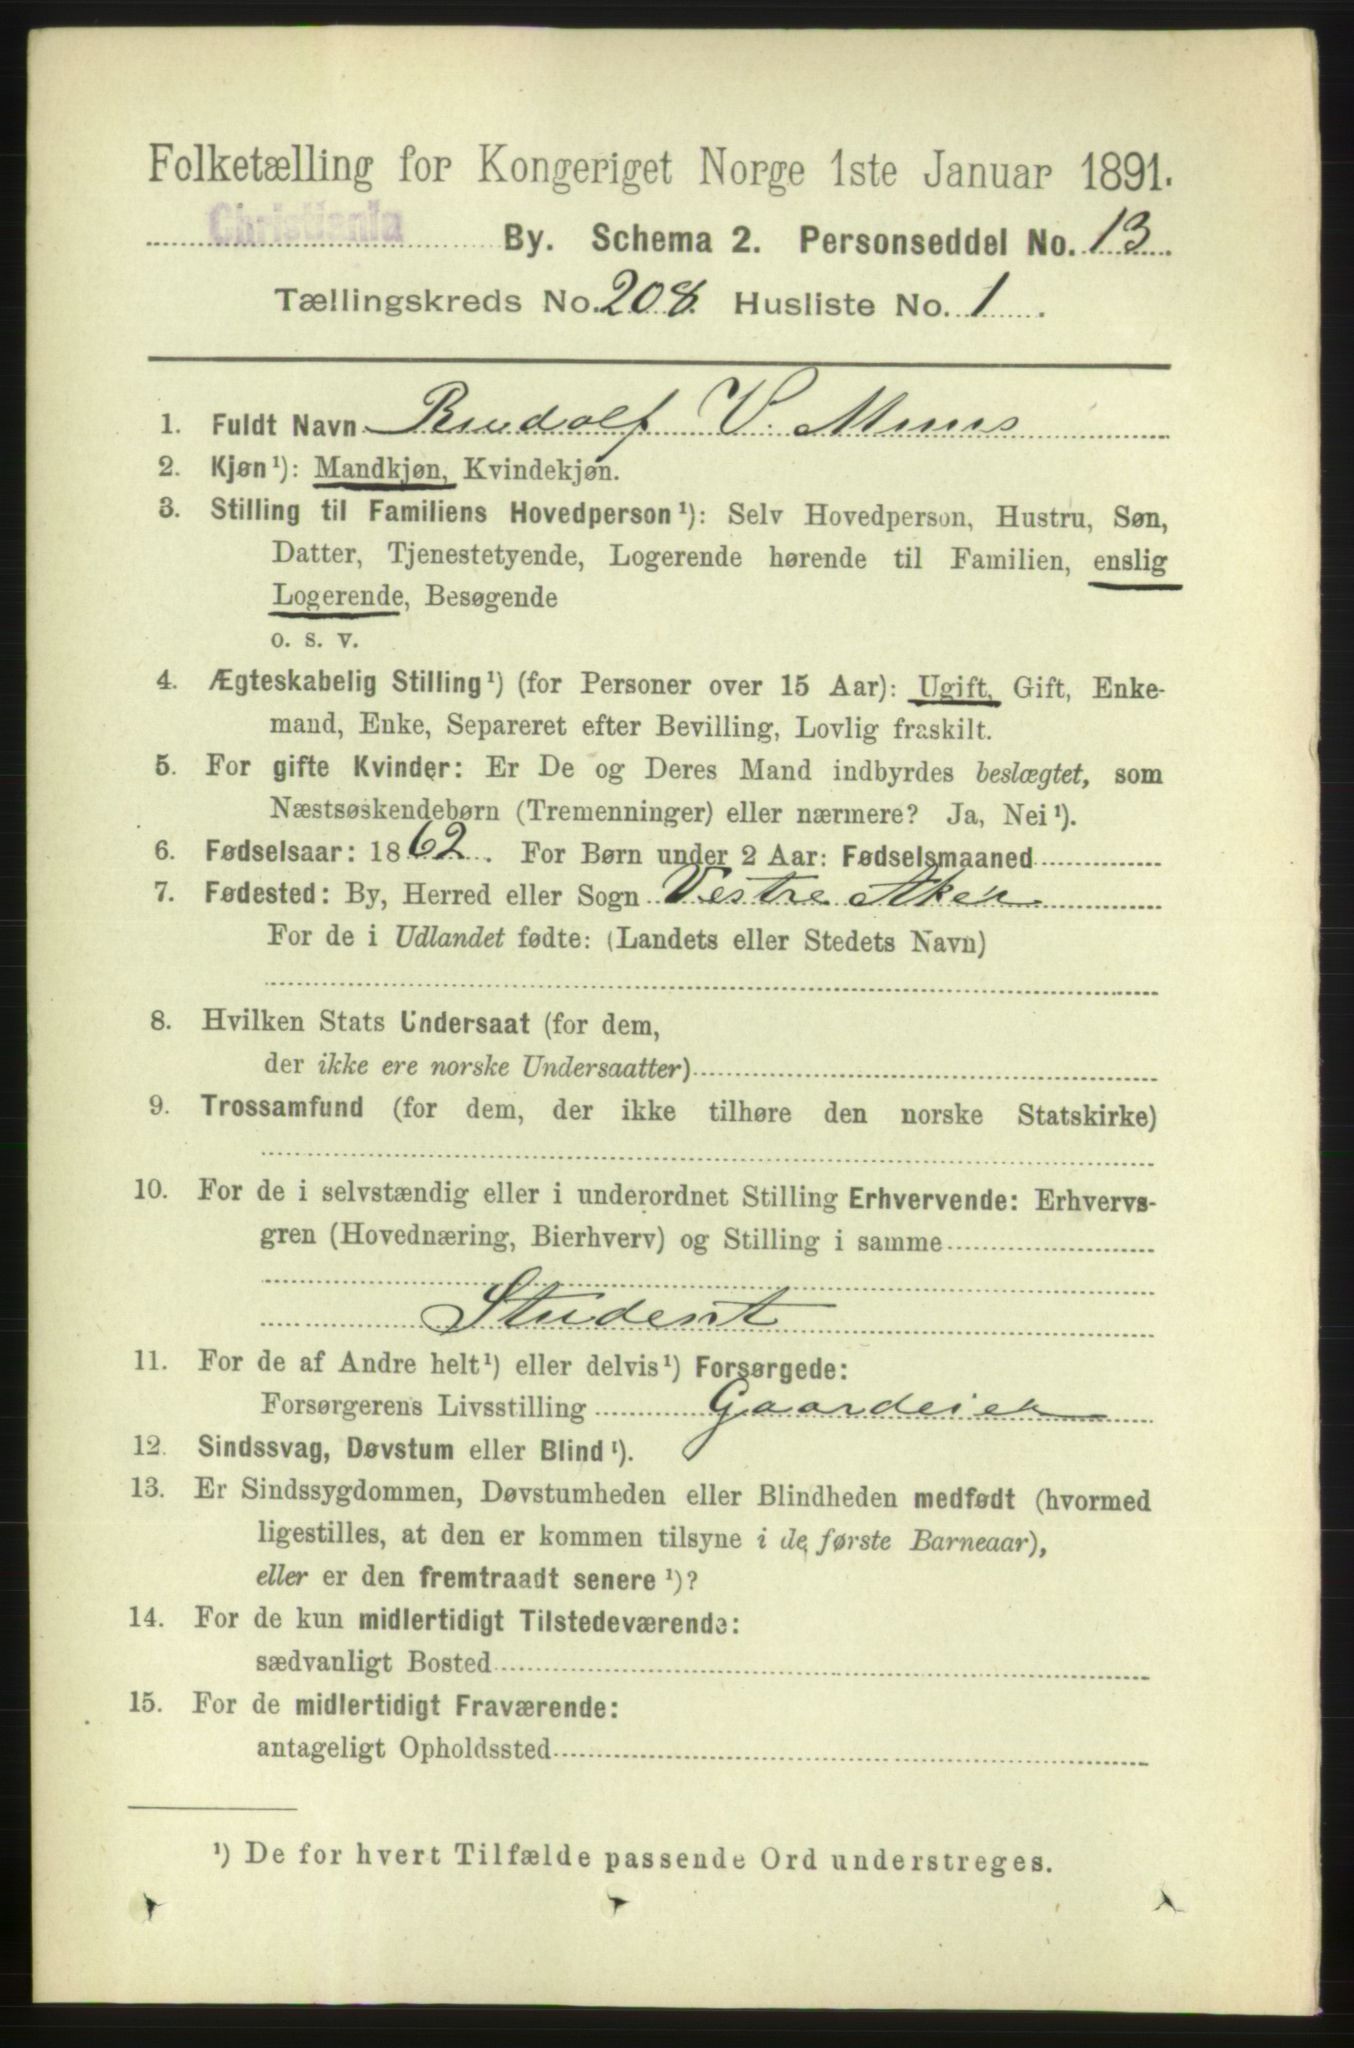 Folketælling for Kongeriget Norge 1ste Januar 1891.
Christiania By. Schema 2. Personseddel No. 13
Tællingskreds No. 208 Husliste No. 1
1. Fuldt Navn Rudolf V. Muus
2. Kjøn¹): Mandkjøn, Kvindekjøn.
3. Stilling til Familiens Hovedperson¹): Selv Hovedperson, Hustru, Søn,
Datter, Tjenestetyende, Logerende hørende til Familien, enslig
Logerende, Besøgende
o. s. v.
4. Ægteskabelig Stilling¹) (for Personer over 15 Aar): Ugift, Gift, Enke-
mand, Enke, Separeret efter Bevilling, Lovlig fraskilt.
5. For gifte Kvinder: Er De og Deres Mand indbyrdes beslægtet, som
Næstsøskendebørn (Tremenninger) eller nærmere? Ja, Nei¹).
6. Fødselsaar: 1862. For Børn under 2 Aar: Fødselsmaaned
7. Fødested: By, Herred eller Sogn Vestre Aker
For de i Udlandet fødte: (Landets eller Stedets Navn)
8. Hvilken Stats Undersaat (for dem,
der ikke ere norske Undersaatter)
9. Trossamfund (for dem, der ikke tilhøre den norske Statskirke)
10. For de i selvstændig eller i underordnet Stilling Erhvervende: Erhvervs-
gren (Hovednæring, Bierhverv) og Stilling i samme
Student
11. For de af Andre helt¹) eller delvis¹) Forsørgede:
Forsørgerens Livsstilling Gaardeier
12. Sindssvag, Døvstum eller Blind¹).
13. Er Sindssygdommen, Døvstumheden eller Blindheden medfødt (hvormed
ligestilles, at den er kommen tilsyne i de første Barneaar),
eller er den fremtraadt senere¹)?
14. For de kun midlertidigt Tilstedeværende:
sædvanligt Bosted
15. For de midlertidigt Fraværende:
antageligt Opholdssted
¹) De for hvert Tilfælde passende Ord understreges.